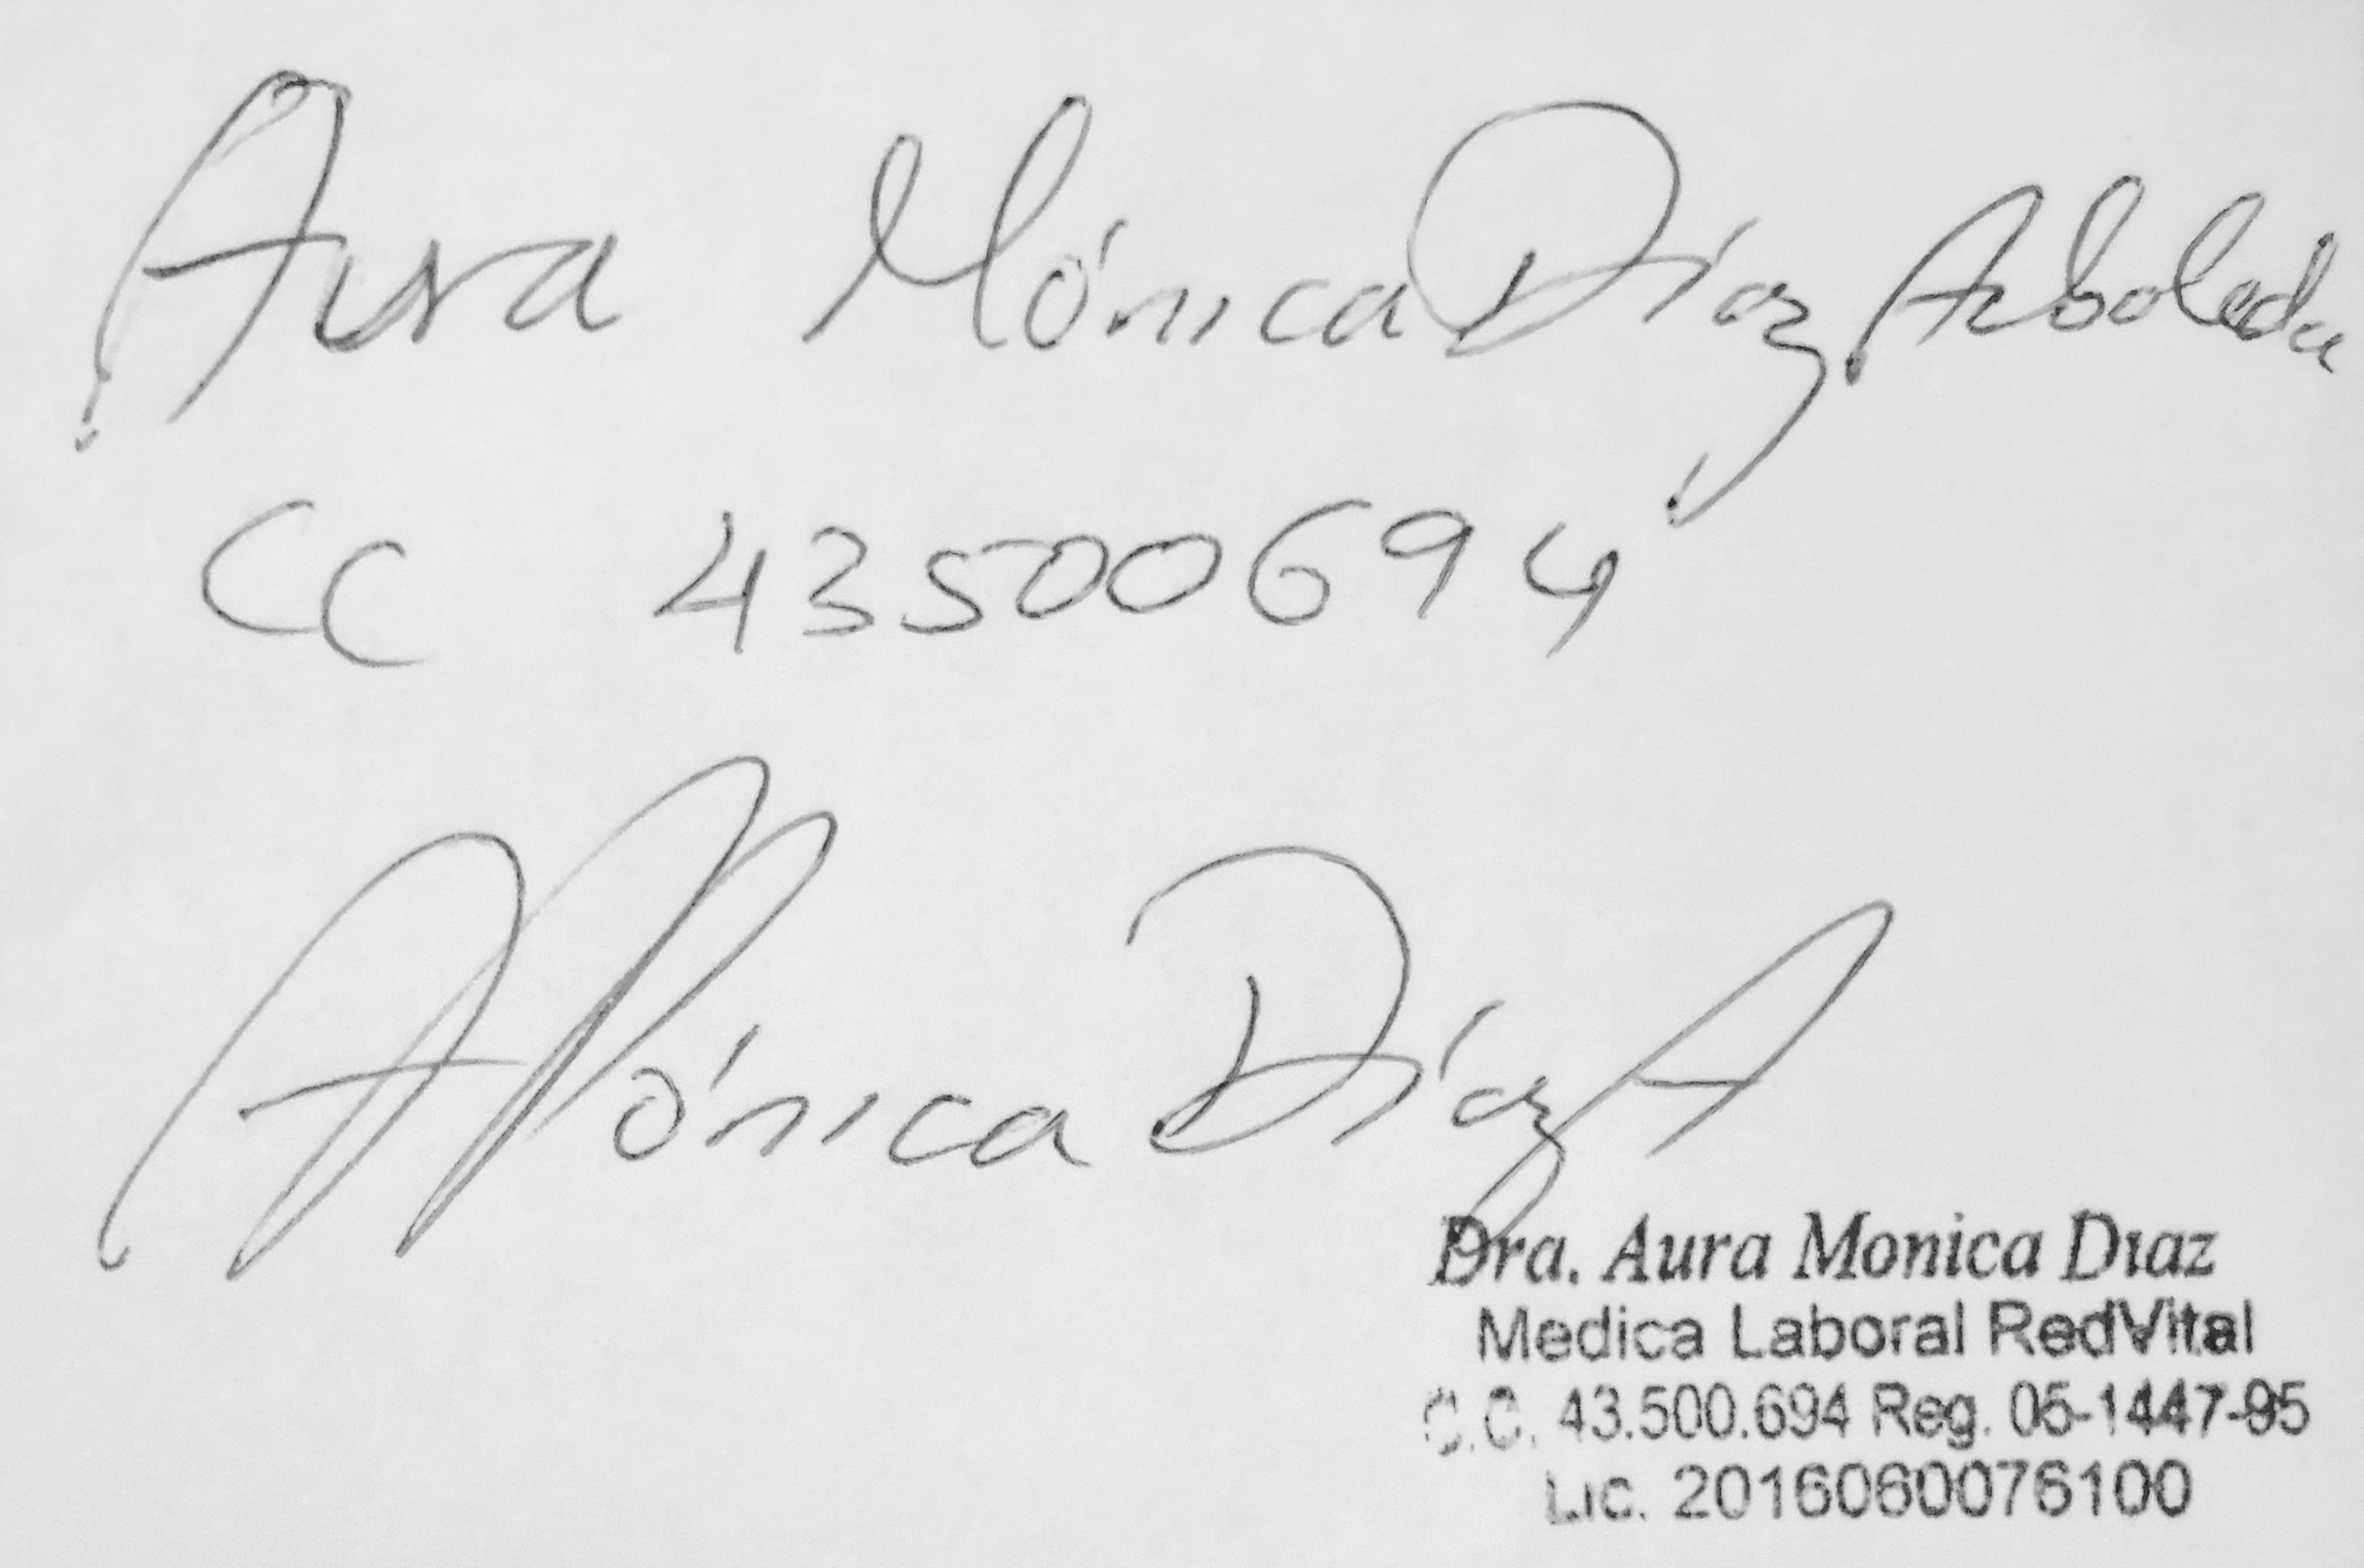 Aura Mónica Díaz Arboleda
CC 43500694
AMónica Díaz A
Dra. Aura Monica Diaz
Medica Laboral RedVital
C.C. 43.500.694 Reg. 05-1447-95
Lic. 2016060076100